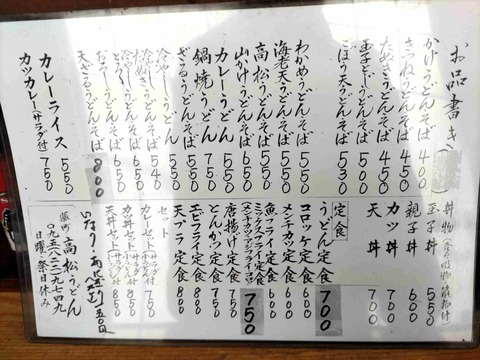 お品書き
かけうどんそば 400
きつねうどんそば 450
たぬきうどんそば 450
玉子とじうどんそば 500
ごぼう天うどんそば 530
わかめうどんそば 550
海老天うどんそば 550
高松うどんそば 550
山かけうどんそば 650
カレーうどん 550
鍋焼うどん 750
ざるうどんそば 550
冷やしうどんそば 550
540
650
650
天ざるうどんそば 800
カレーライス 550
カツカレー(サラダ付) 750
丼物
玉子丼 550
親子丼 600
カツ丼 700
天丼 700
定食
うどん定食 700
コロッケ定食 600
メンチカツ定食 600
魚フライ定食 600
ミックスフライ定食 750
唐揚げ定食 700
とんかつ定食 750
エビフライ定食 800
天プラ定食 800
セット
カレーセット 750
カツ丼セット 850
天丼セット 850
高松うどん
日曜、祭日休み